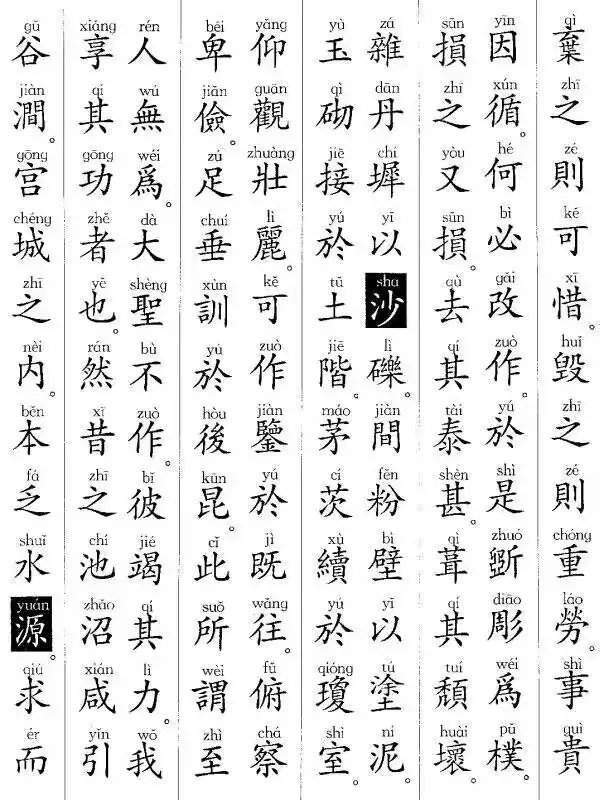 qì zhī zé kě xī huǐ zhī zé chóng láo shì guì
棄之則可惜。毀之則重勞。事貴
yīn xún hé bì gǎi zuò yú shì zhuó diāo wéi pǔ
因循。何必改作。於是斲彫爲樸
sǔn zhī yòu sǔn qù qí tài shèn qì qí tuí huài
損之又損。去其泰甚。葺其頹壞。
zá dān chí yǐ sha lì jiàn fěn bì yǐ tú ní
雜丹墀以沙礫。間粉壁以塗泥。
yù qì jiē yú tǔ jiē máo cí xù yú qióng shì
玉砌接於土階。茅茨續於瓊室。
yǎng guān zhuàng lì kě zuò jiàn yú jì wǎng fǔ chá
仰觀壯麗。可作鑒於既往。俯察
bēi jiǎn zú chuí xùn yú hòu kūn cǐ suǒ wèi zhì
卑儉。足垂訓於後昆。此所謂至
rén wú wéi dà shèng bù zuò bǐ jié qí lì wǒ
人無爲。大聖不作。彼竭其力。我
xiǎng qí gōng zhě yě rán xī zhī chí zhǎo xián yǐn
享其功者也。然昔之池沼。咸引
gǔ jiàn gōng chéng zhī nèi běn fá shuǐ yuán qiú ér
谷澗。宮城之內。本乏水源。求而